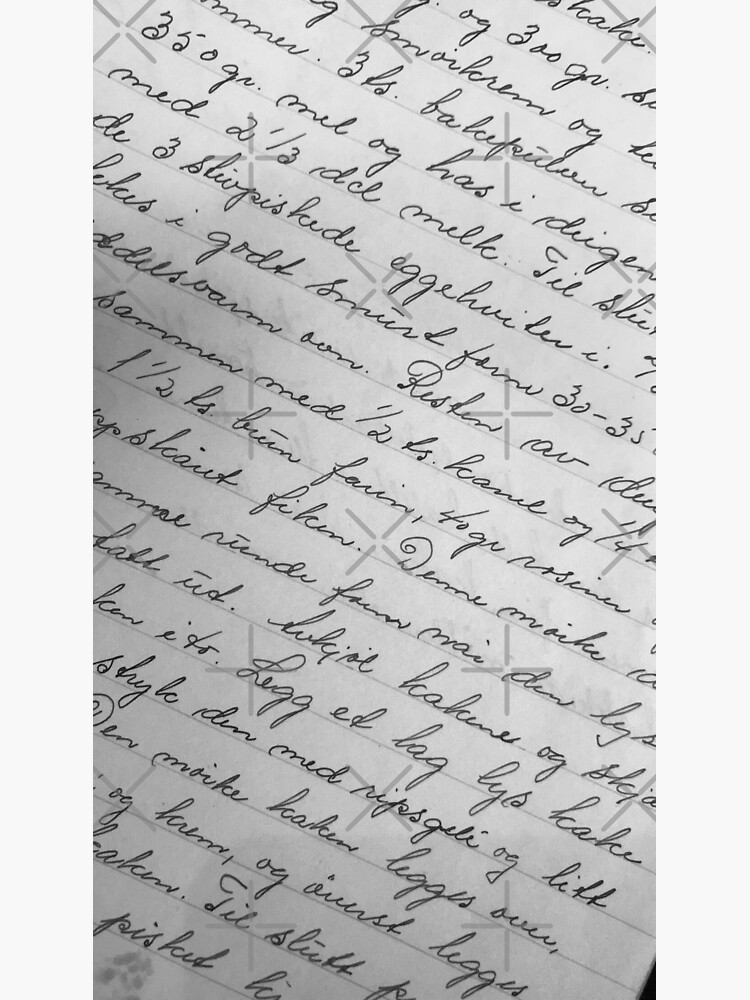 g. og 300 gr. s
mmer. Smørkrem og
350 gr. mel og 3 ts. bakepulver
med 2 1/3 dcl melk. has i deigen
de 3 stivpiskede eggehviter i. Til slut
ekes i godt smurt form 30-35
ddelsvarm ovn. Resten av
sammen med 1/2 ts. kanel og 1/4
1 1/2 ts. brun farin, 40 gr rosiner
ppskåret fiken. Denne mørke
amme runde form når den lys
tatt ut. Avkjøl kakene og skjæ
ken i to. Legg et lag lys kake
stryk den med ripsgelé og litt
Den mørke kaken legges over,
og krem, og øverst legges
kaken. Til slutt p
pisket k